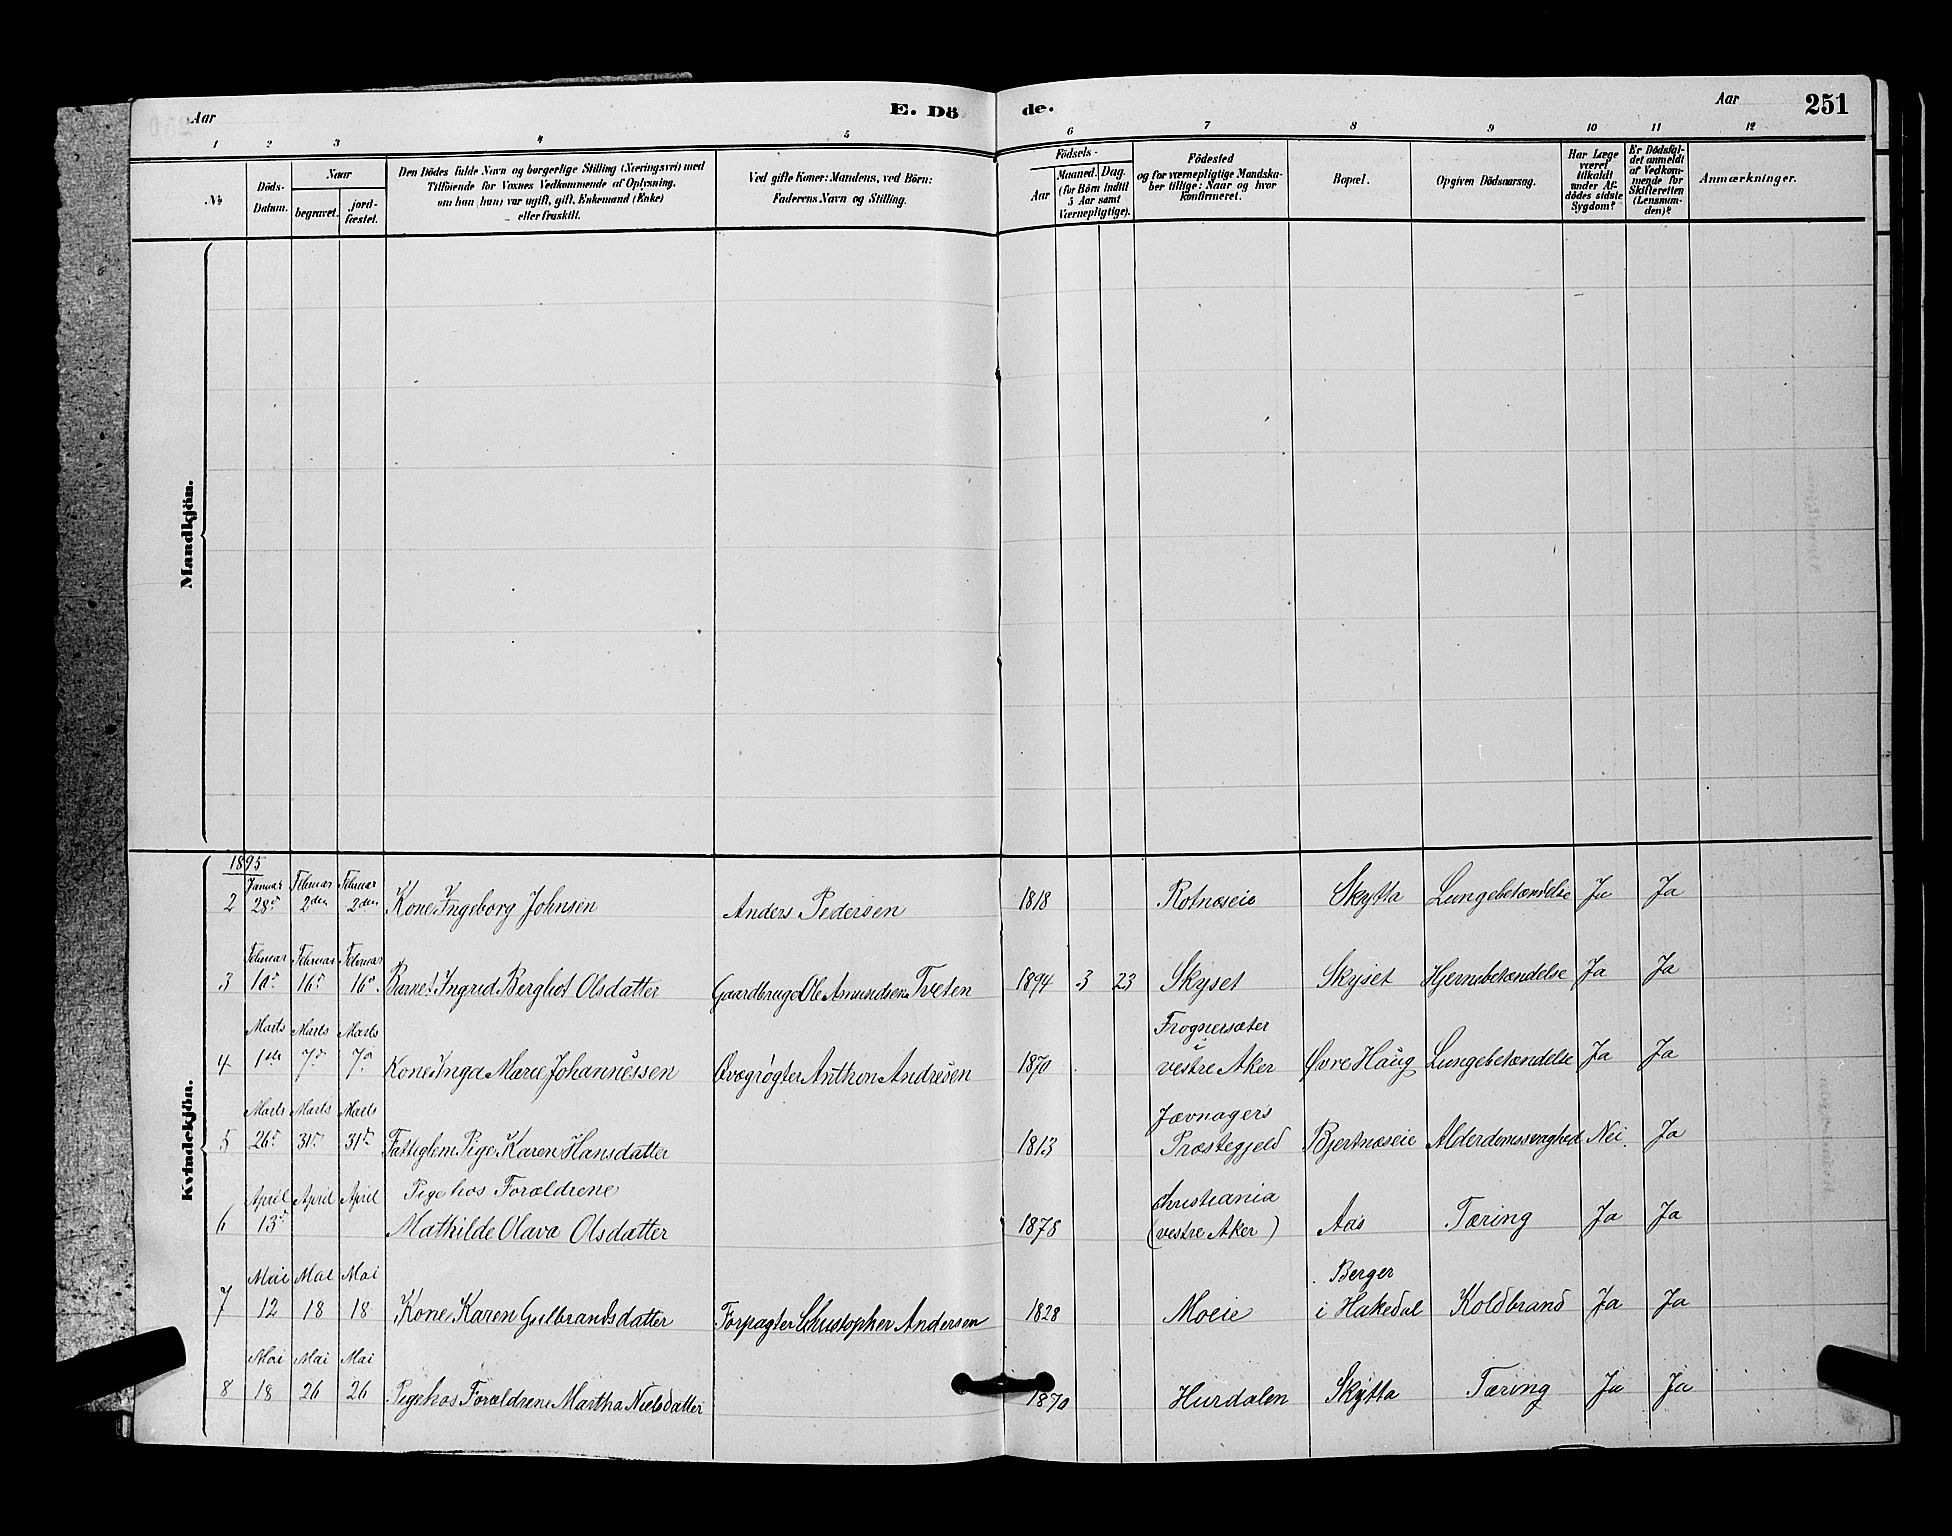 Aar
E. Dö
de.
Aar
251
1 2 3 4 5 6 7 8 9 10 11 12
№
Döds-
Datum.
Naar
begravet.
jord-
fæstet.
Den Dödes fulde Navn og borgerlige Stilling (Næringsvei) med
Tilföiende for Voxnes Vedkommende af Oplysning,
om han (hun) var ugift, gift, Enkemand (Enke)
eller fraskilt.
Ved gifte Koner: Mandens, ved Börn:
Faderens Navn og Stilling.
Födsels-
Aar
Maaned. Dag.
(for Börn indtil
5 Aar samt
Værnepligtige).
Födested
og for værnepligtige Mandska-
ber tillige: Naar og hvor
konfirmeret.
Bopæl.
Opgiven Dödsaarsag.
Har Læge
været
tilkaldt
under Af-
dödes sidste
Sygdom?
Er Dödsfal-
det anmeldt
af Vedkom-
mende for
Skifteretten
(Lensman-
den)?
Anmærkninger.
Mandkjön.
Kvindekjön.
1895
Januar Februar Februar
2 28de 2den 2den Kone Ingeborg Johnsen Anders Pedersen 1818 Rotnæseie Skytta Lungebetændelse Ja Ja
Februar Februar Februar
3 10de 16de 16de Barnet Ingrid Berghot Olsdatter Gaardbruger Ole Amundsen Tveten 1894 3 23 Skyset Skyset Hjernebetændelse Ja Ja
Marts Marts Marts Frognersæter
4 1ste 7de 7de Kone Inga Marie Johannessen Qvægrøgter Anthon Andresen 1870 vestre Aker Øvre Haug Lungebetændelse Ja Ja
Marts Marts Marts Jævnagers
5 26de 31te 31te Fattiglem Pige Karen Hansdatter 1813 Præstegjeld Bjertnæseie Alderdomssvaghed Nei. Ja
April April April Pige hos Forældrene Christiania
6 13de Mathilde Olava Olsdatter 1878 (vestre Aker) Aas Tæring Ja Ja
Mai Mai Mai Berger
7 12 18 18 Kone Karen Gulbrandsdatter Forpagter Christopher Andersen 1828 Moeie i Hakedal Koldbrand Ja Ja
Mai Mai Mai
8 18 26 26 Pige hos Forældrene Martha Nielsdatter 1870 Hurdalen Skytta Tæring Ja Ja